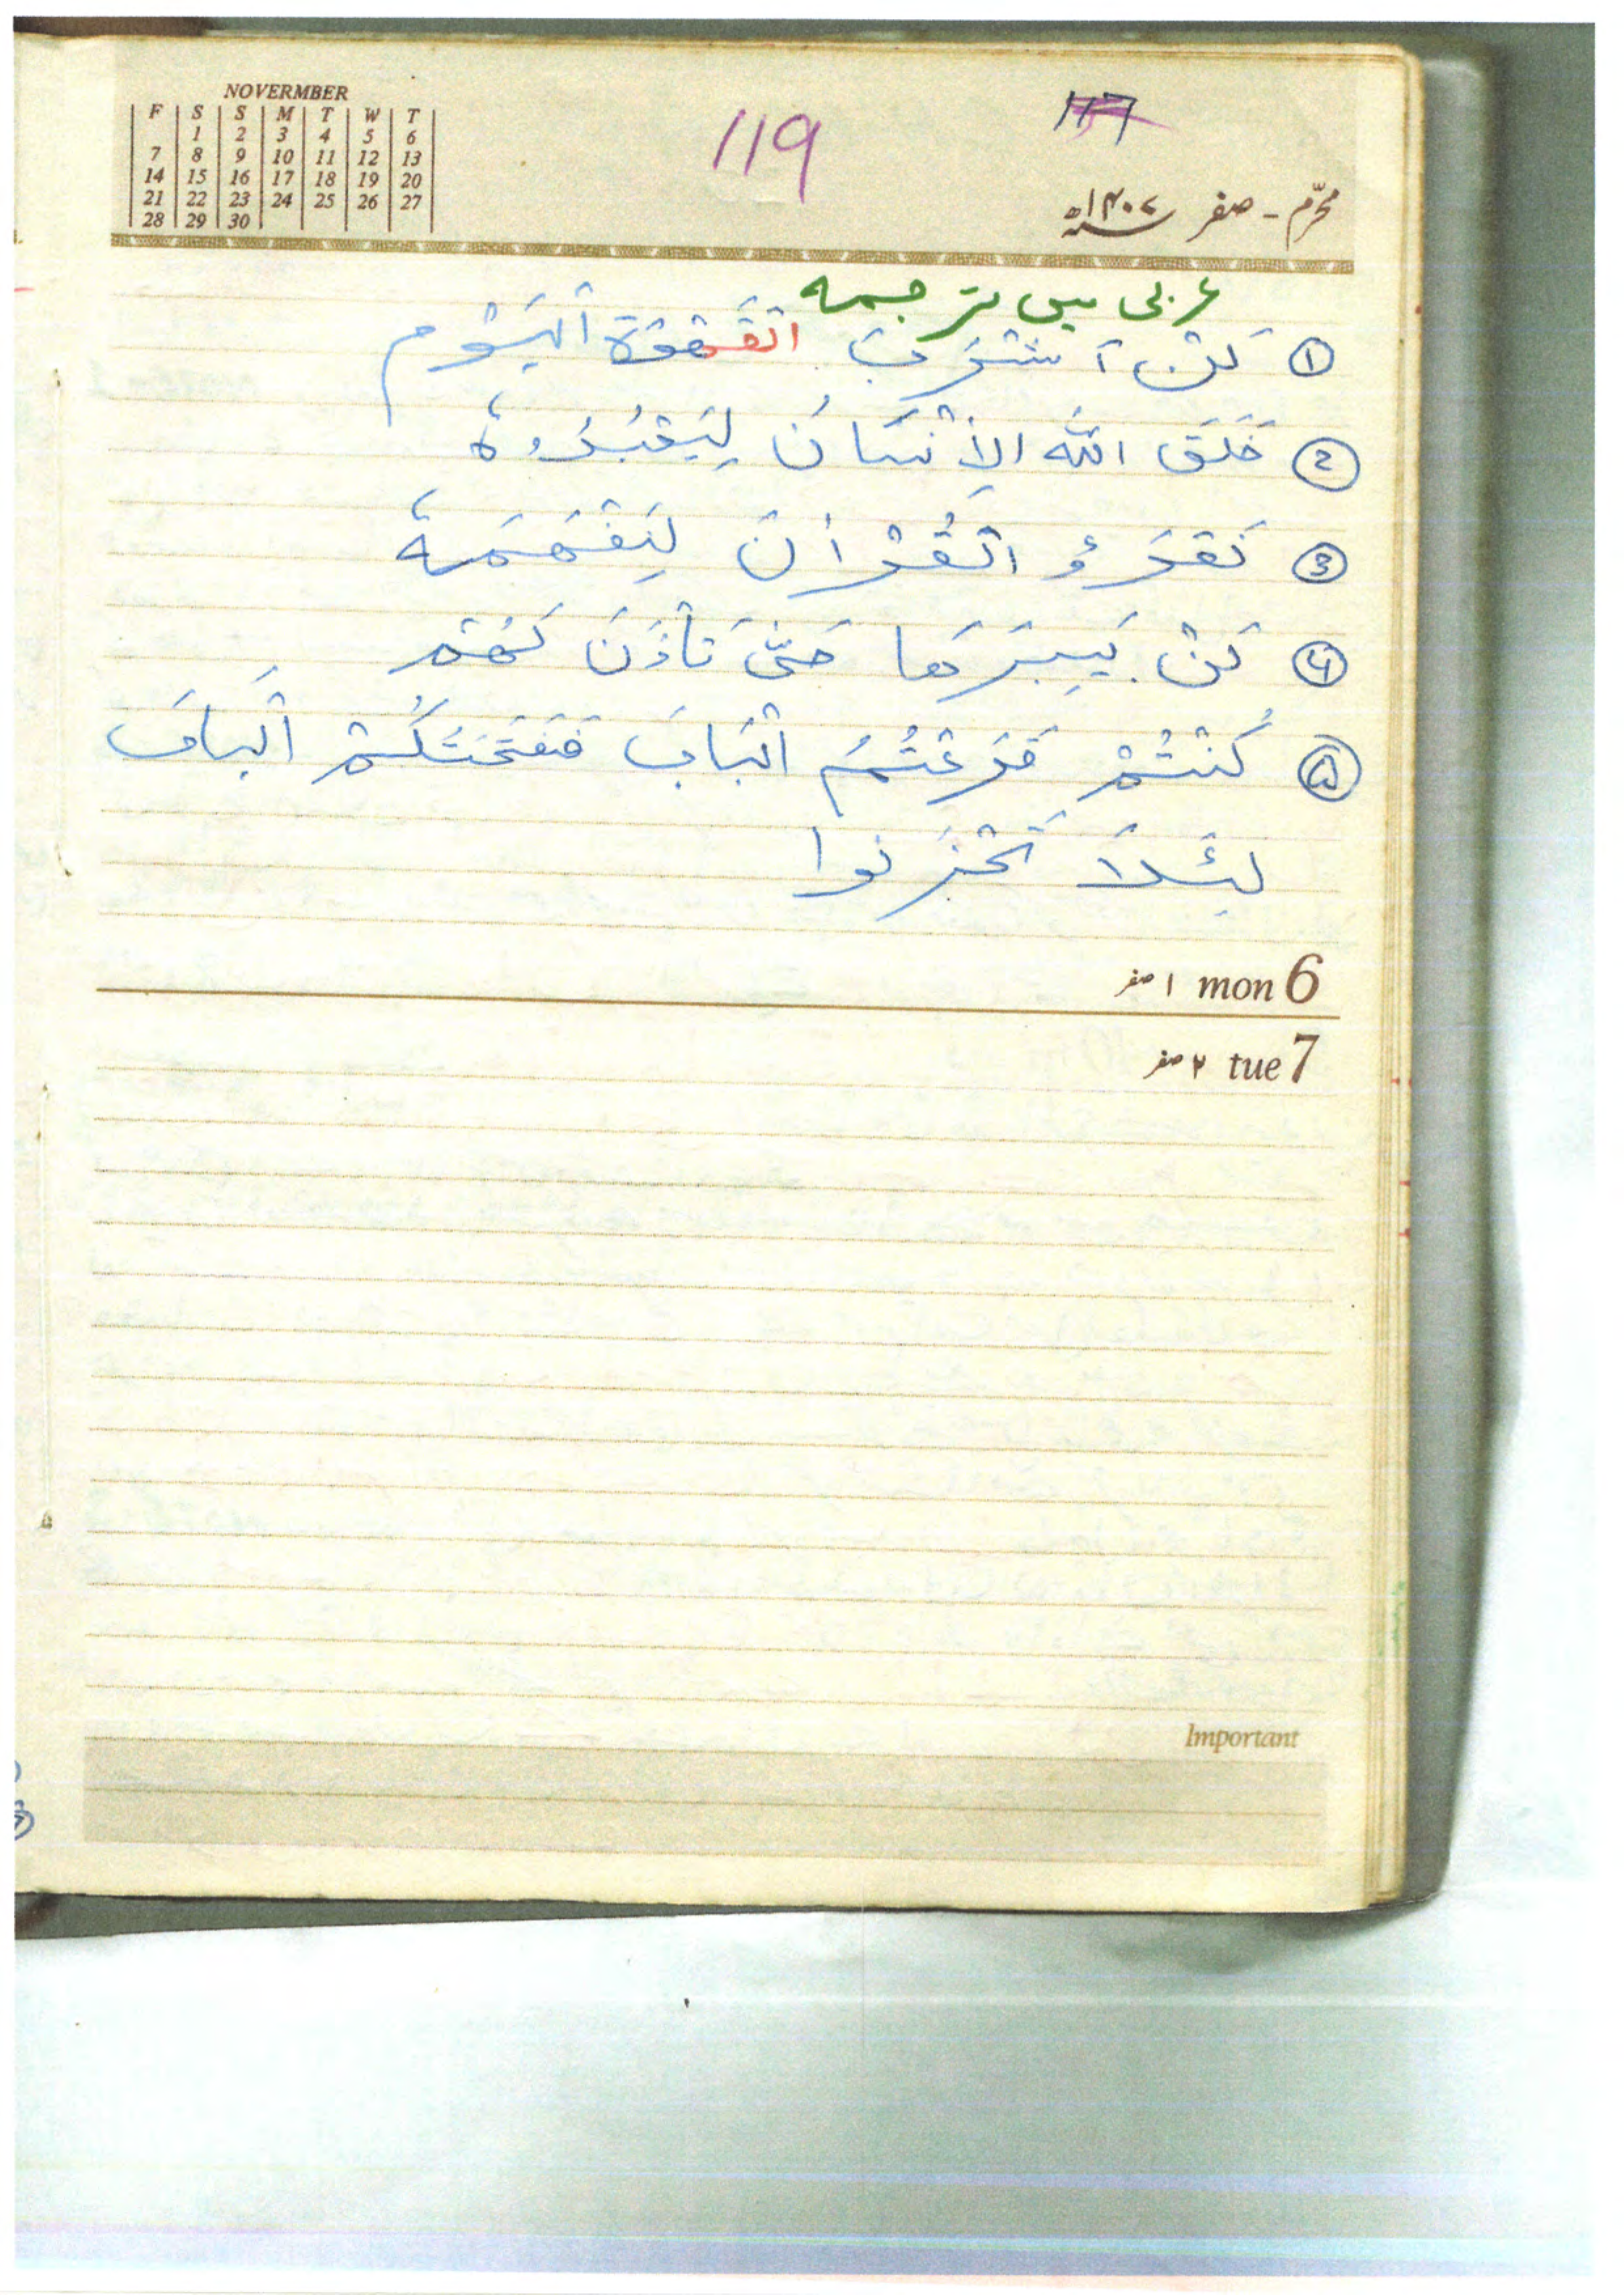 NOVERMBER
F S S M T W T
1 2 3 4 5 6
7 8 9 10 11 12 13
14 15 16 17 18 19 20
21 22 23 24 25 26 27
28 29 30
119
117
محرّم - صفر ۱۴۰۷ھ
عربی میں ترجمہ
① لَنْ اَشْرَبَ القَهْوَةَ اَلْيَوْم
② خَلَقَ اللّٰه الاِنْسَانَ لِيَعْبُدُوهُ
③ نَقْرَؤُ الْقُرْاٰنَ لِنَفْهَمَهٗ
④ لَنْ حَتّٰى تَأذَنَ لَهُمْ
⑤ كُنْتُمْ قَرَعْتُمُ الْبَابَ فَفَتَحْتُ لَكُمْ الْبابَ
لِئَلَّا تَحْزَنوا
۱ صفر mon 6
۲ صفر tue 7
Important